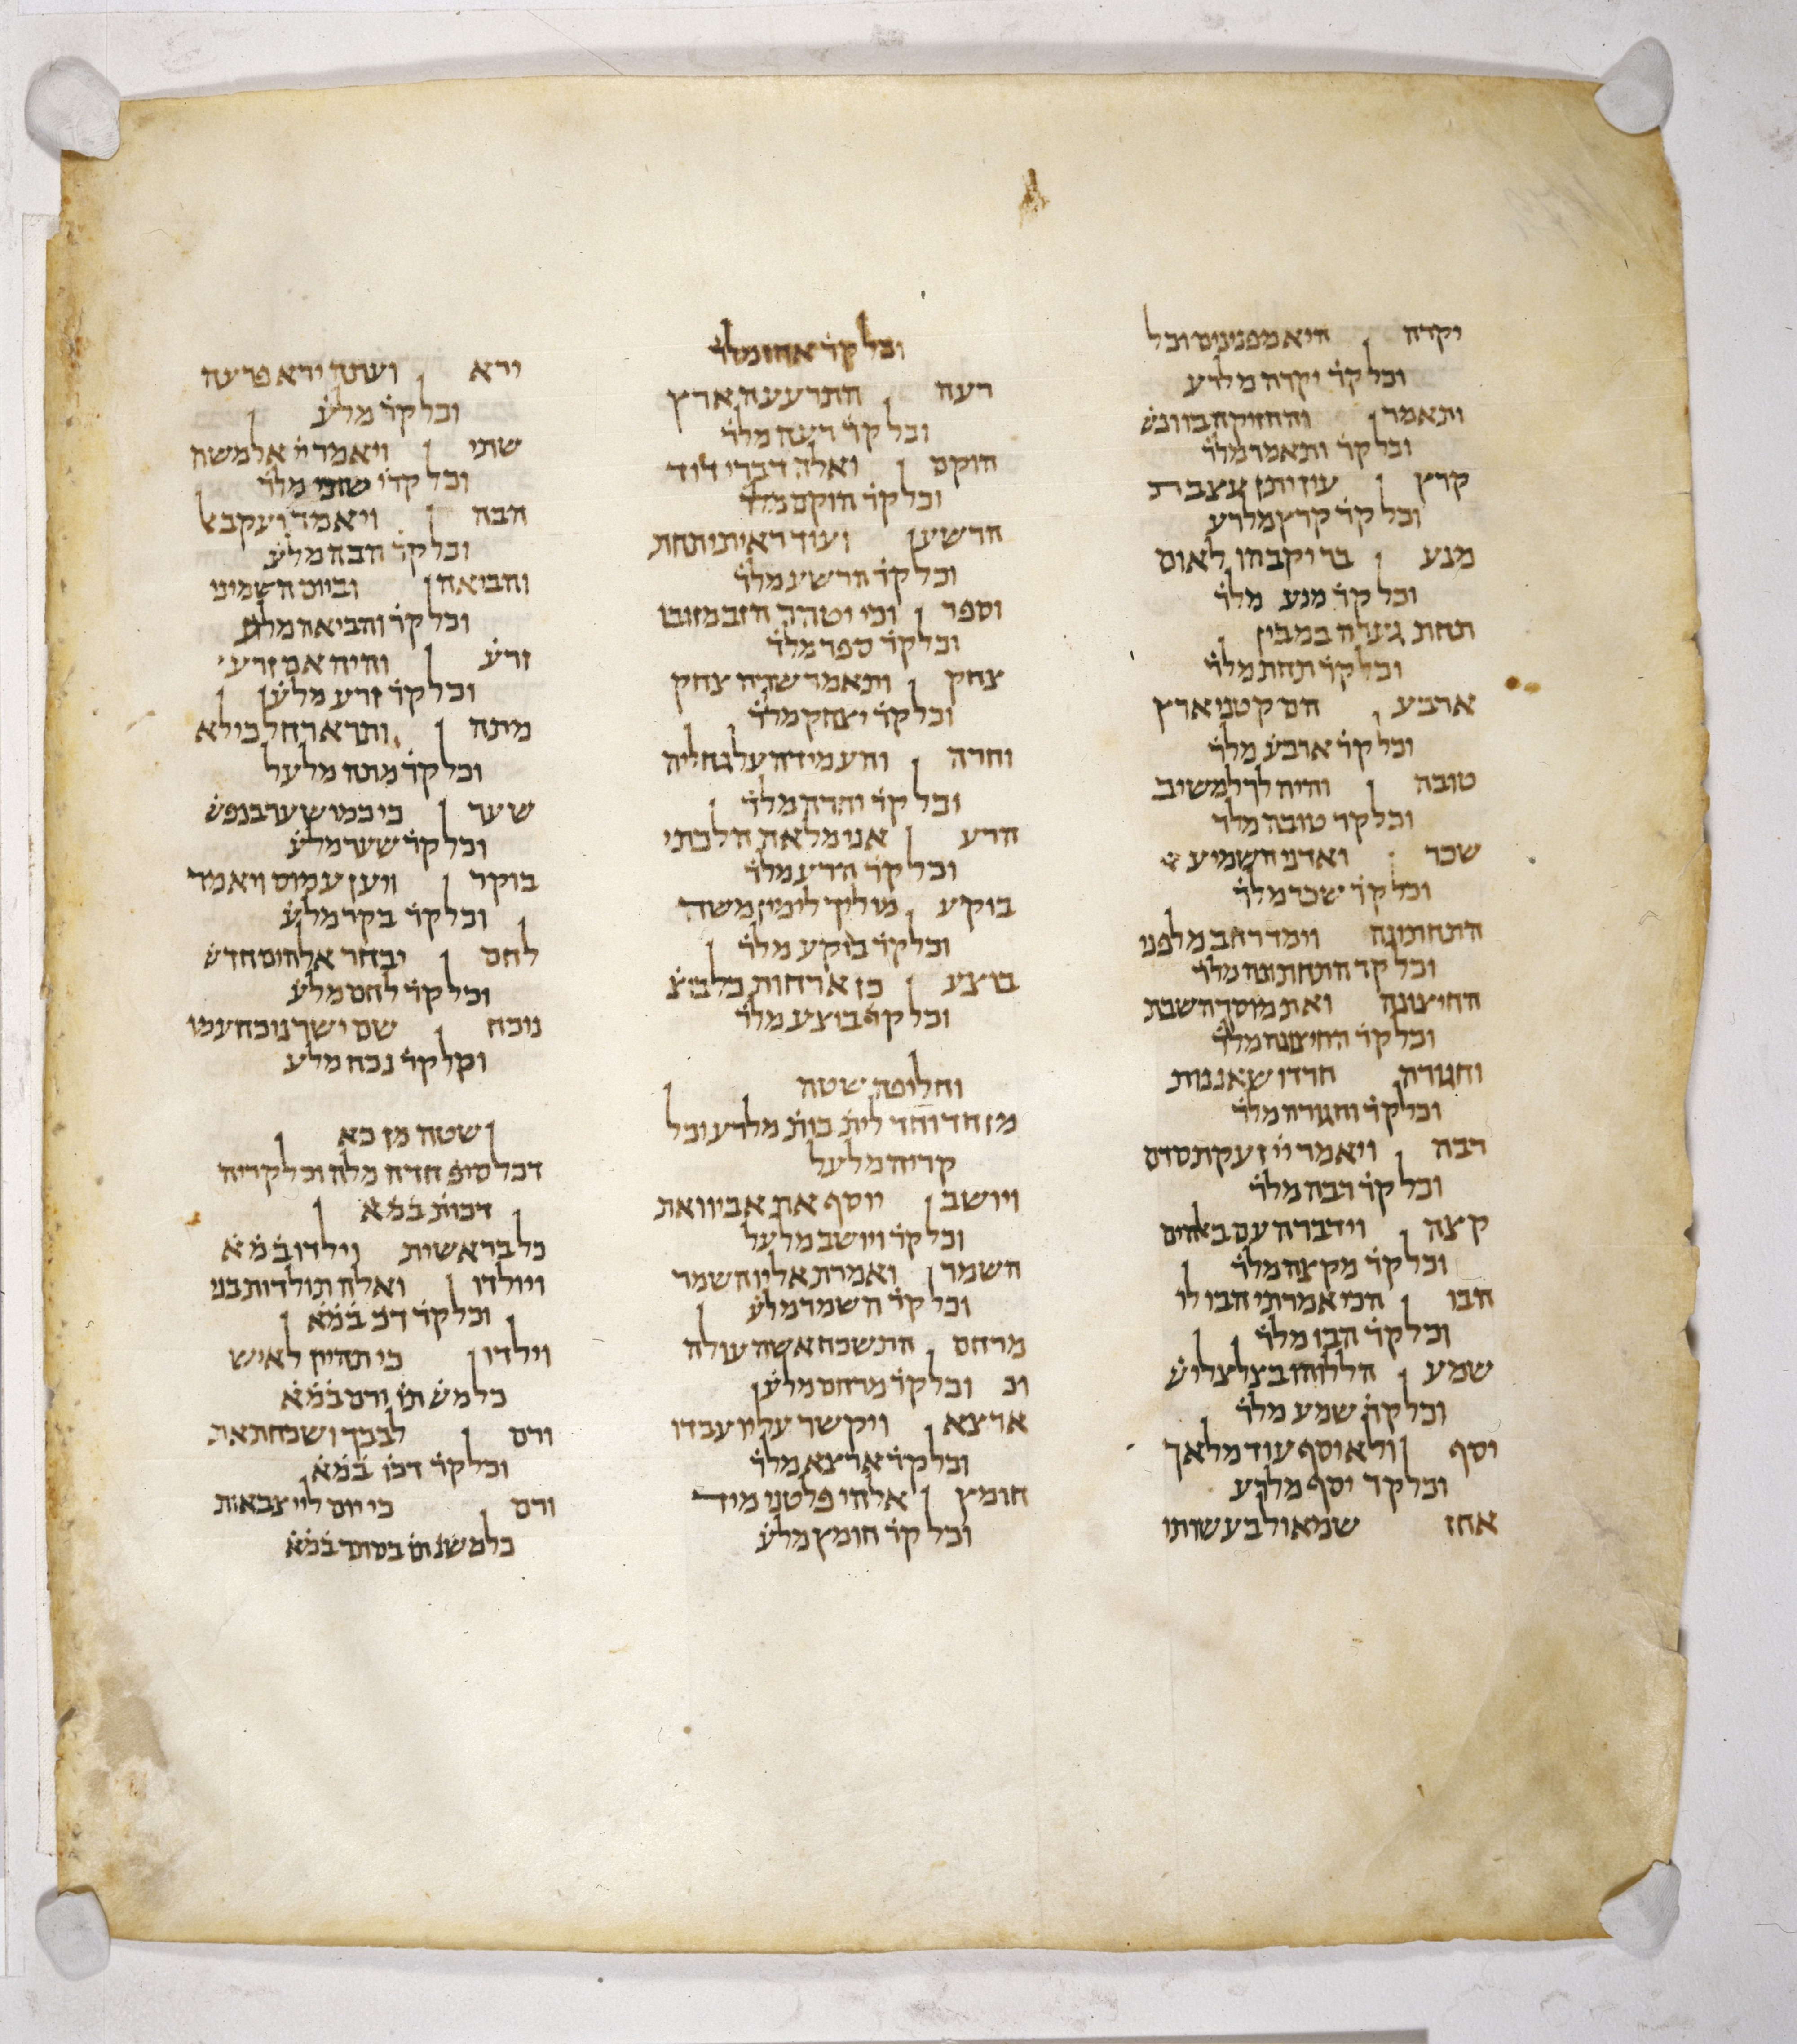 יקרה היא מפנינים וכל
וכל קר יקרה מלרע
ותאמר והחזיקה בו ונש
וכל קר ותאמר מלר
קרץ עין יתן עצבת
וכל קר קרץ מלרע
מנע בר יקבהו לאום
וכל קר מנע מלר
תחת גערה במבין
וכל קר תחת מלר
ארבע הם קטני ארץ
וכל קר ארבע מלר
טובה והיה לך למשיב
וכל קר טובה מלר
שכר ואדני השמיע
וכל קר שכר מלר
התחתונה וימד רחב מלפני
וכל קר התחתונה מלר
החיצונה ואת מוסך השבת
וכל קר החיצונה מלר
וחגורה חרדו שאננות
וכל קר וחגורה מלר
רבה ויאמר ייי זעקת סדם
וכל קר רבה מלר
קצה וידברה עם באהים
וכל קר מקצה מלר
הבו הכי אמרתי הבו לי
וכל קר הבו מלר
שמע הללוהו בצלצלי ש
וכל קר שמע מלר
יסף ולא יוסף עוד מלאך
וכל קר יסף מלרע
אחז שמאול בעשותו
וכל קר אחז מלר
רעה התרעעה ארץ
וכל קר רעה מלר
הוקם ואלה דברי דוד
וכל קר הוקם מלר
הרשע ועוד ראיתי תחת
וכל קר הרשע מלר
וספר וכי יטהר הזב מזובו
וכל קר ספר מלר
צחק ותאמר שרה צחק
וכל קר יצחק מלר
וחרה והעמידה על גחליה
וכל קר וחרה מלר
הרע אני מלאת הלכתי
וכל קר הרע מלר
בוקע מוליך לימין משה
וכל קר בוקע מלר
בוצע כן ארחות כל בוצ
וכל קר בוצע מלר
וחליפה שטה
מן חד וחד לית כות מלרע וכל
קריה מלעל
ויושב יוסף את אביו ואת
וכל קר ויושב מלעל
השמר ואמרת אליו השמר
וכל קר השמר מלע
מרחם התשכח אשה עולה
וכ וכל קר מרחם מלע
ארצא ויקשר עליו עבדו
וכל קר ארצא מלר
חומץ אלהי פלטני מיד
וכל קר חומץ מלע
ירא ועתה ירא פרעה
וכל קר מלע
שתי ויאמר יי אל משה
וכל קרי שתי מלר
הבה ויאמר יעקב אל
וכל קר הבה מלע
והביאה וביום השמיני
וכל קר והביאה מלע
זרע והיה אם זרע י
וכל קר זרע מלע
מתה ותרא רחל כי לא
וכל קר מתה מלעל
שער כי כמו שער בנפש
וכל קר שער מלע
בוקר ויען עמוס ויאמר
וכל קר בקר מלע
לחם יבחר אלהים חדש
וכל קר לחם מלע
נוכח שם ישר נוכח עמו
וקל קר נכח מלע
שטה מן כא
דכל סיפ חדה מלה וכל קריה
דכות במא
כל בראשית וילדו במא
ויולדו ואלה תולדות בני
וכל קר דכ במא
וילדו כי תהיין לאיש
כל מש תו ורם במא
ורם לבבך ושכחת את
וכל קר דכו במא
ורם כי יום ליי צבאות
כל משנ תו בסתר במא